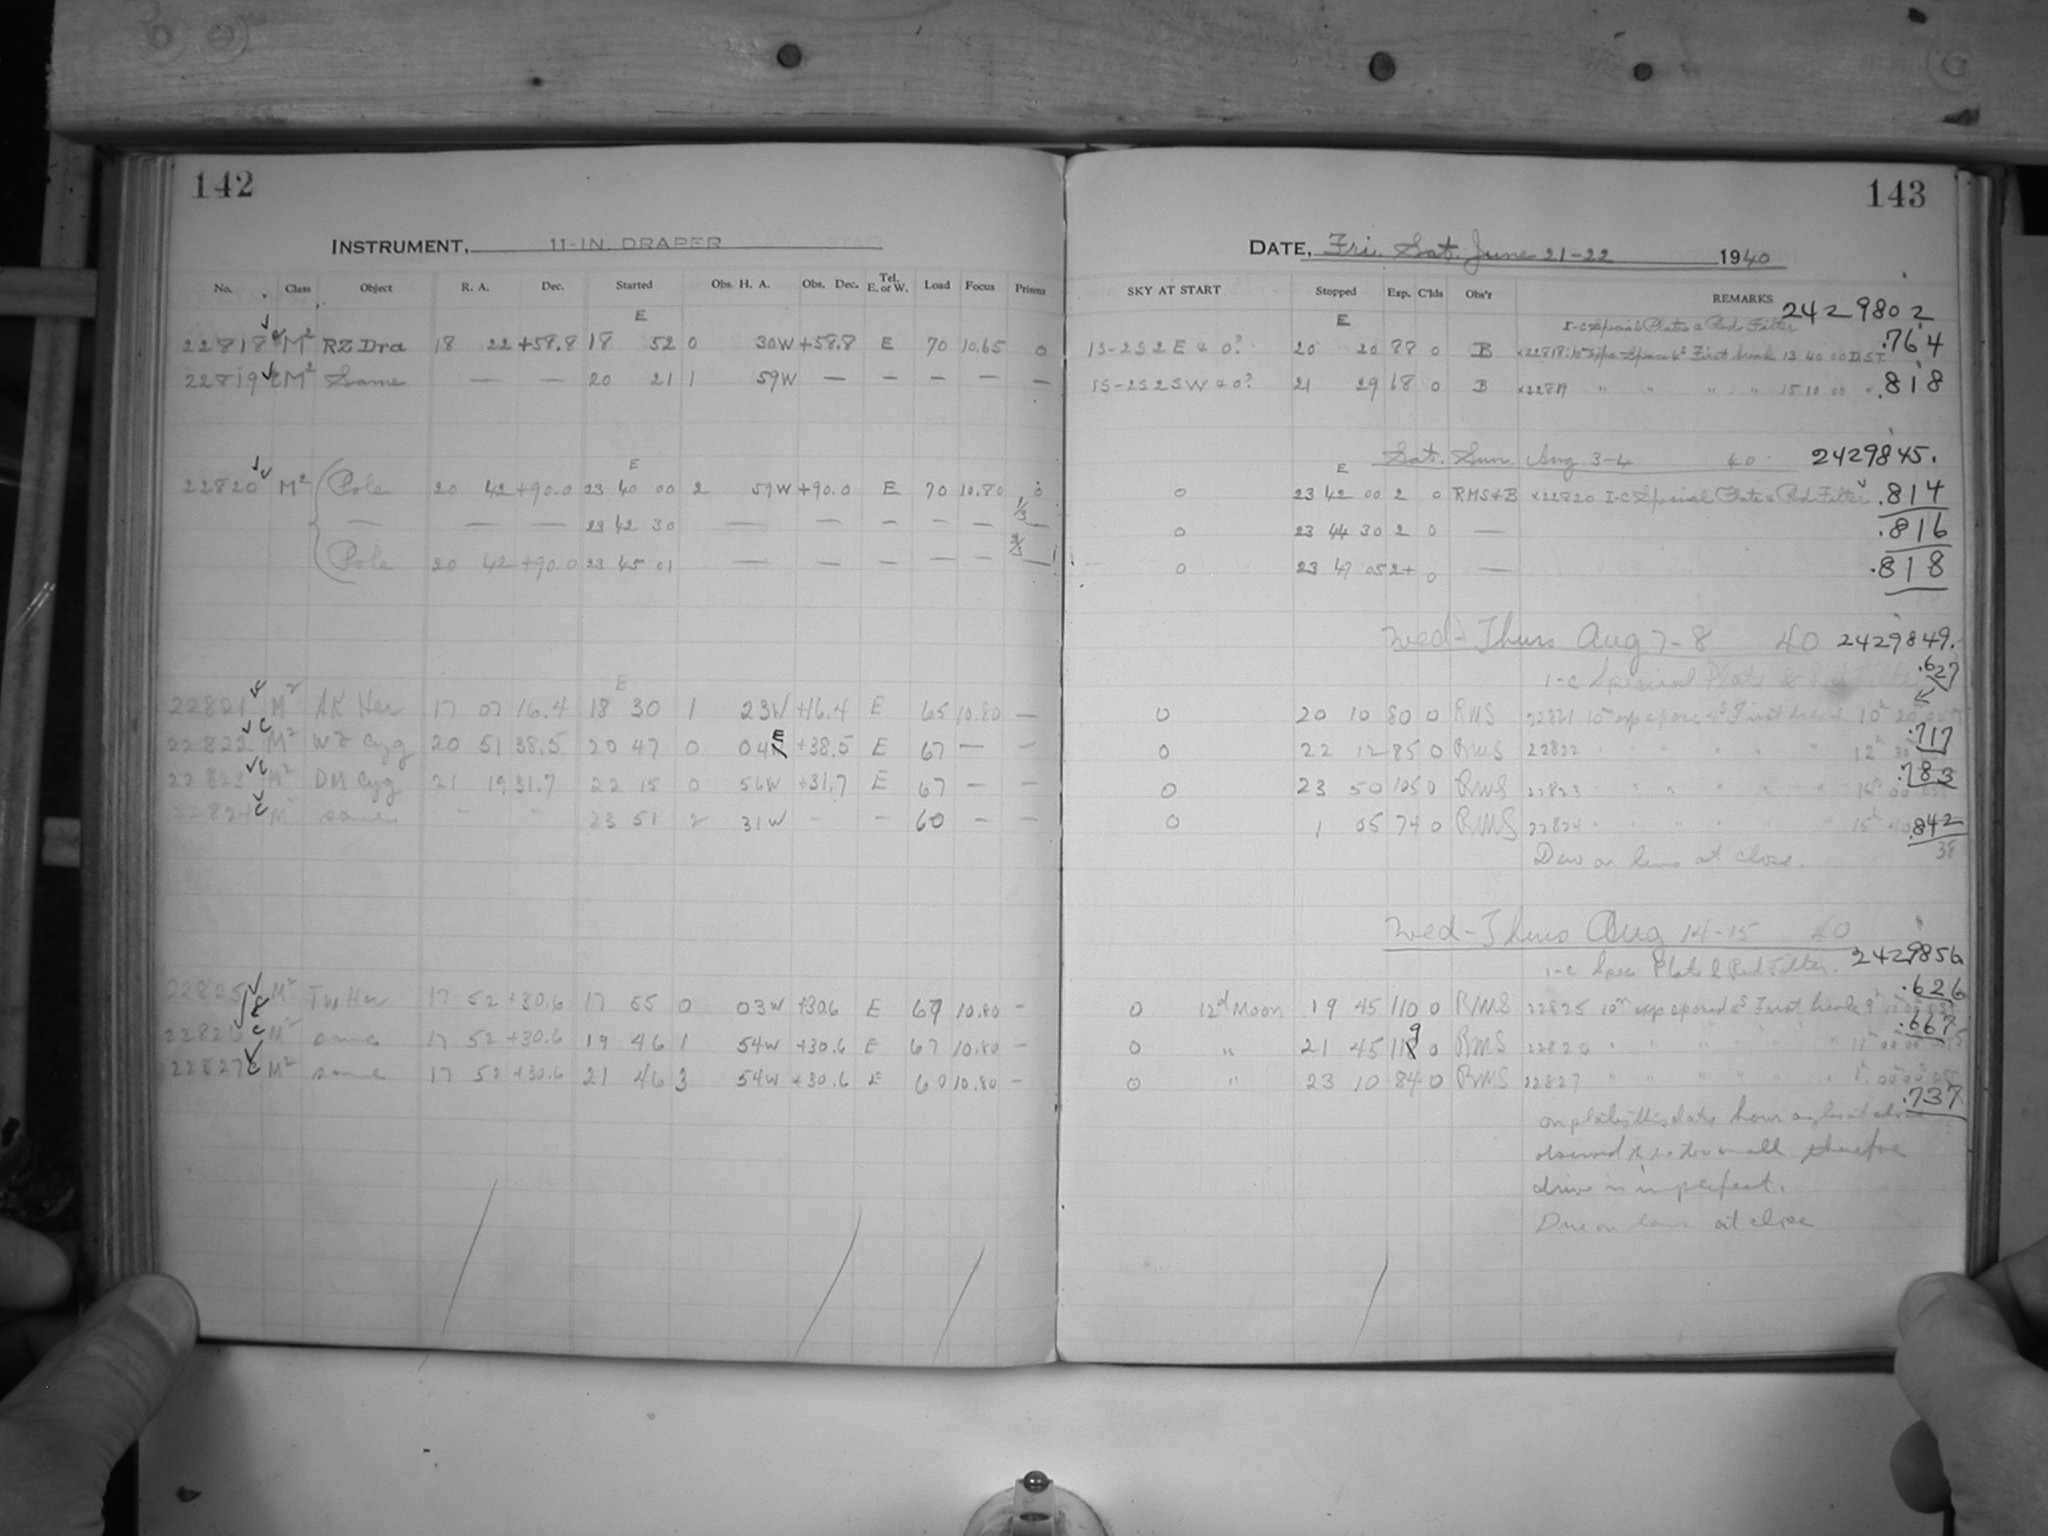 142
143
INSTRUMENT, 11-IN. DRAPER
DATE, Fri. Sat. June 21-22 1940
No. Class Object R. A. Dec. Started Obs. H. A. Obs. Dec. Tel. E. or W. Load Focus Prisms SKY AT START Stopped Exp. C'lds Obs'r REMARKS
2429802
E E I-C Special Plates & Red Filter
22818 M² RZ Dra 18 22 +58.8 18 52 0 30W +58.8 E 70 10.65 0 1S-2S2E & 0? 20 20 88 0 B x22818: First break 13 40 00 D.S.T. .764
22819 M² Same — — 20 21 1 59W — — — — — 1S-2S2SW & 0? 21 29 68 0 B x22819 " " " " 15 10 00 " .818
Sat. Sun. Aug 3-4 40 2429845.
E E
22820 M² Pole 20 42 +90.0 23 40 00 2 59W +90.0 E 70 10.80 0 0 23 42 00 2 0 RMS+B x22820 I-C Special Plate & Red Filter .814
— — — 23 42 30 — — — — — 1/3 — 0 23 44 30 2 0 — .816
Pole 20 42 +90.0 23 45 01 — — — — — 2/3 — 0 23 47 05 2+ 0 — .818
Wed-Thurs Aug 7-8 40 2429849.
E I-C Special Plate & Red Filter .627
22821 M² AK Her 17 07 16.4 18 30 1 23W +16.4 E 65 10.80 — 0 20 10 80 0 RMS 22821 10m First break 10h 20
22822 M² WZ Cyg 20 51 38.5 20 47 0 04E +38.5 E 67 — — 0 22 12 85 0 RMS 22822 " " " " 12h .717
22823 M² DM Cyg 21 19 31.7 22 15 0 56W +31.7 E 67 — 0 23 50 105 0 RMS 22823 " " " " .783
22824 M² same - - 23 51 2 31W - - 60 - - 0 1 05 74 0 RMS 22824 " " " " 15h .842
38
Dew on lens at close.
Wed-Thurs Aug 14-15 40
2429856
I-C Spec Plate & Red Filter.
22825 M² TW Her 17 52 +30.6 17 55 0 03W +30.6 E 69 10.80 - 0 12d Moon 19 45 110 0 RMS 22825 10m First break 9h .626
22826 M² same 17 52 +30.6 19 46 1 54W +30.6 E 67 10.80 - 0 " 21 45 119 0 RMS " " " " 11h .667
22827 M² same 17 52 +30.6 21 46 3 54W +30.6 E 60 10.80 - 0 " 23 10 84 0 RMS 22827 " " " " 1h .737
on plates this date hour angles at
observed too small therefore
drive is imperfect.
Dew on lens at close